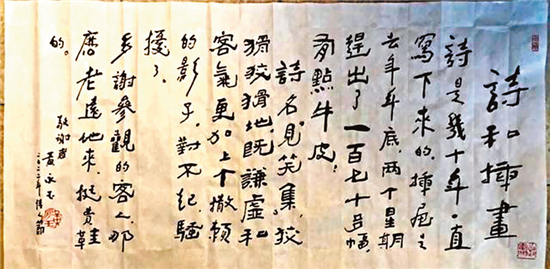 詩和插畫
詩是幾十年一直
寫下來的，插畫是
去年年底，两个星期
趕出了一百七十多幅，
有點牛皮。
詩名見笑集，狡
猾狡猾地，既謙虚和
客氣更加上个撒賴
的影子。對不起，騷
擾了。
多謝參觀的客人，那
麼老遠地來，挺費鞋
的。
敬謝者
黄永玉
二〇二二年